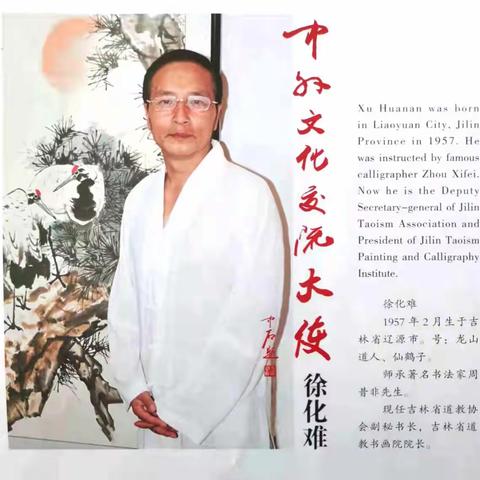 中外文化交流大使
徐化难
Xu Huanan was born
in Liaoyuan City, Jilin
Province in 1957. He
was instructed by famous
calligrapher Zhou Xifei.
Now he is the Deputy
Secretary-general of Jilin
Taoism Association and
President of Jilin Taoism
Painting and Calligraphy
Institute.
徐化难
1957 年 2 月生于吉
林省辽源市。号：龙山
道人、仙鹤子。
师承著名书法家周
昔非先生。
现任吉林省道教协
会副秘书长，吉林省道
教书画院院长。